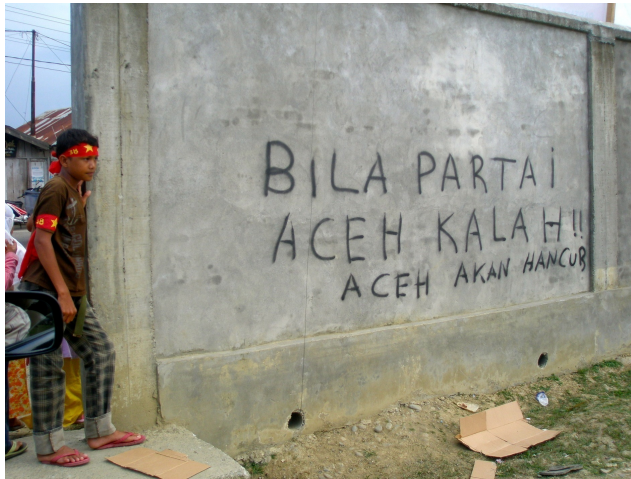 BILA PARTAI
ACEH KALAH!!
ACEH AKAN HANCUB